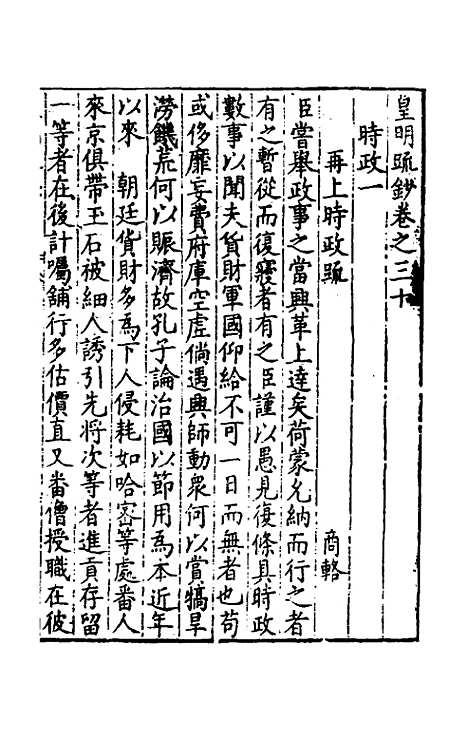 皇明疏鈔卷之三十
時政一
再上時政疏 商輅
臣嘗舉政事之當興革上達矣荷蒙允納而行之者
有之暫從而復寢者有之臣謹以愚見復條具時政
數事以聞夫貨財軍國仰給不可一日而無者也苟
或侈靡妄費府庫空虛倘遇興師動衆何以賞犒旱
澇饑荒何以賑濟故孔子論治國以節用為本近年
以來 朝廷貨財多為下人侵耗如哈密等處番人
來京俱帶玉石被細人誘引先將次等者進貢存留
一等者在後計囑舖行多估價直又番僧授職在彼